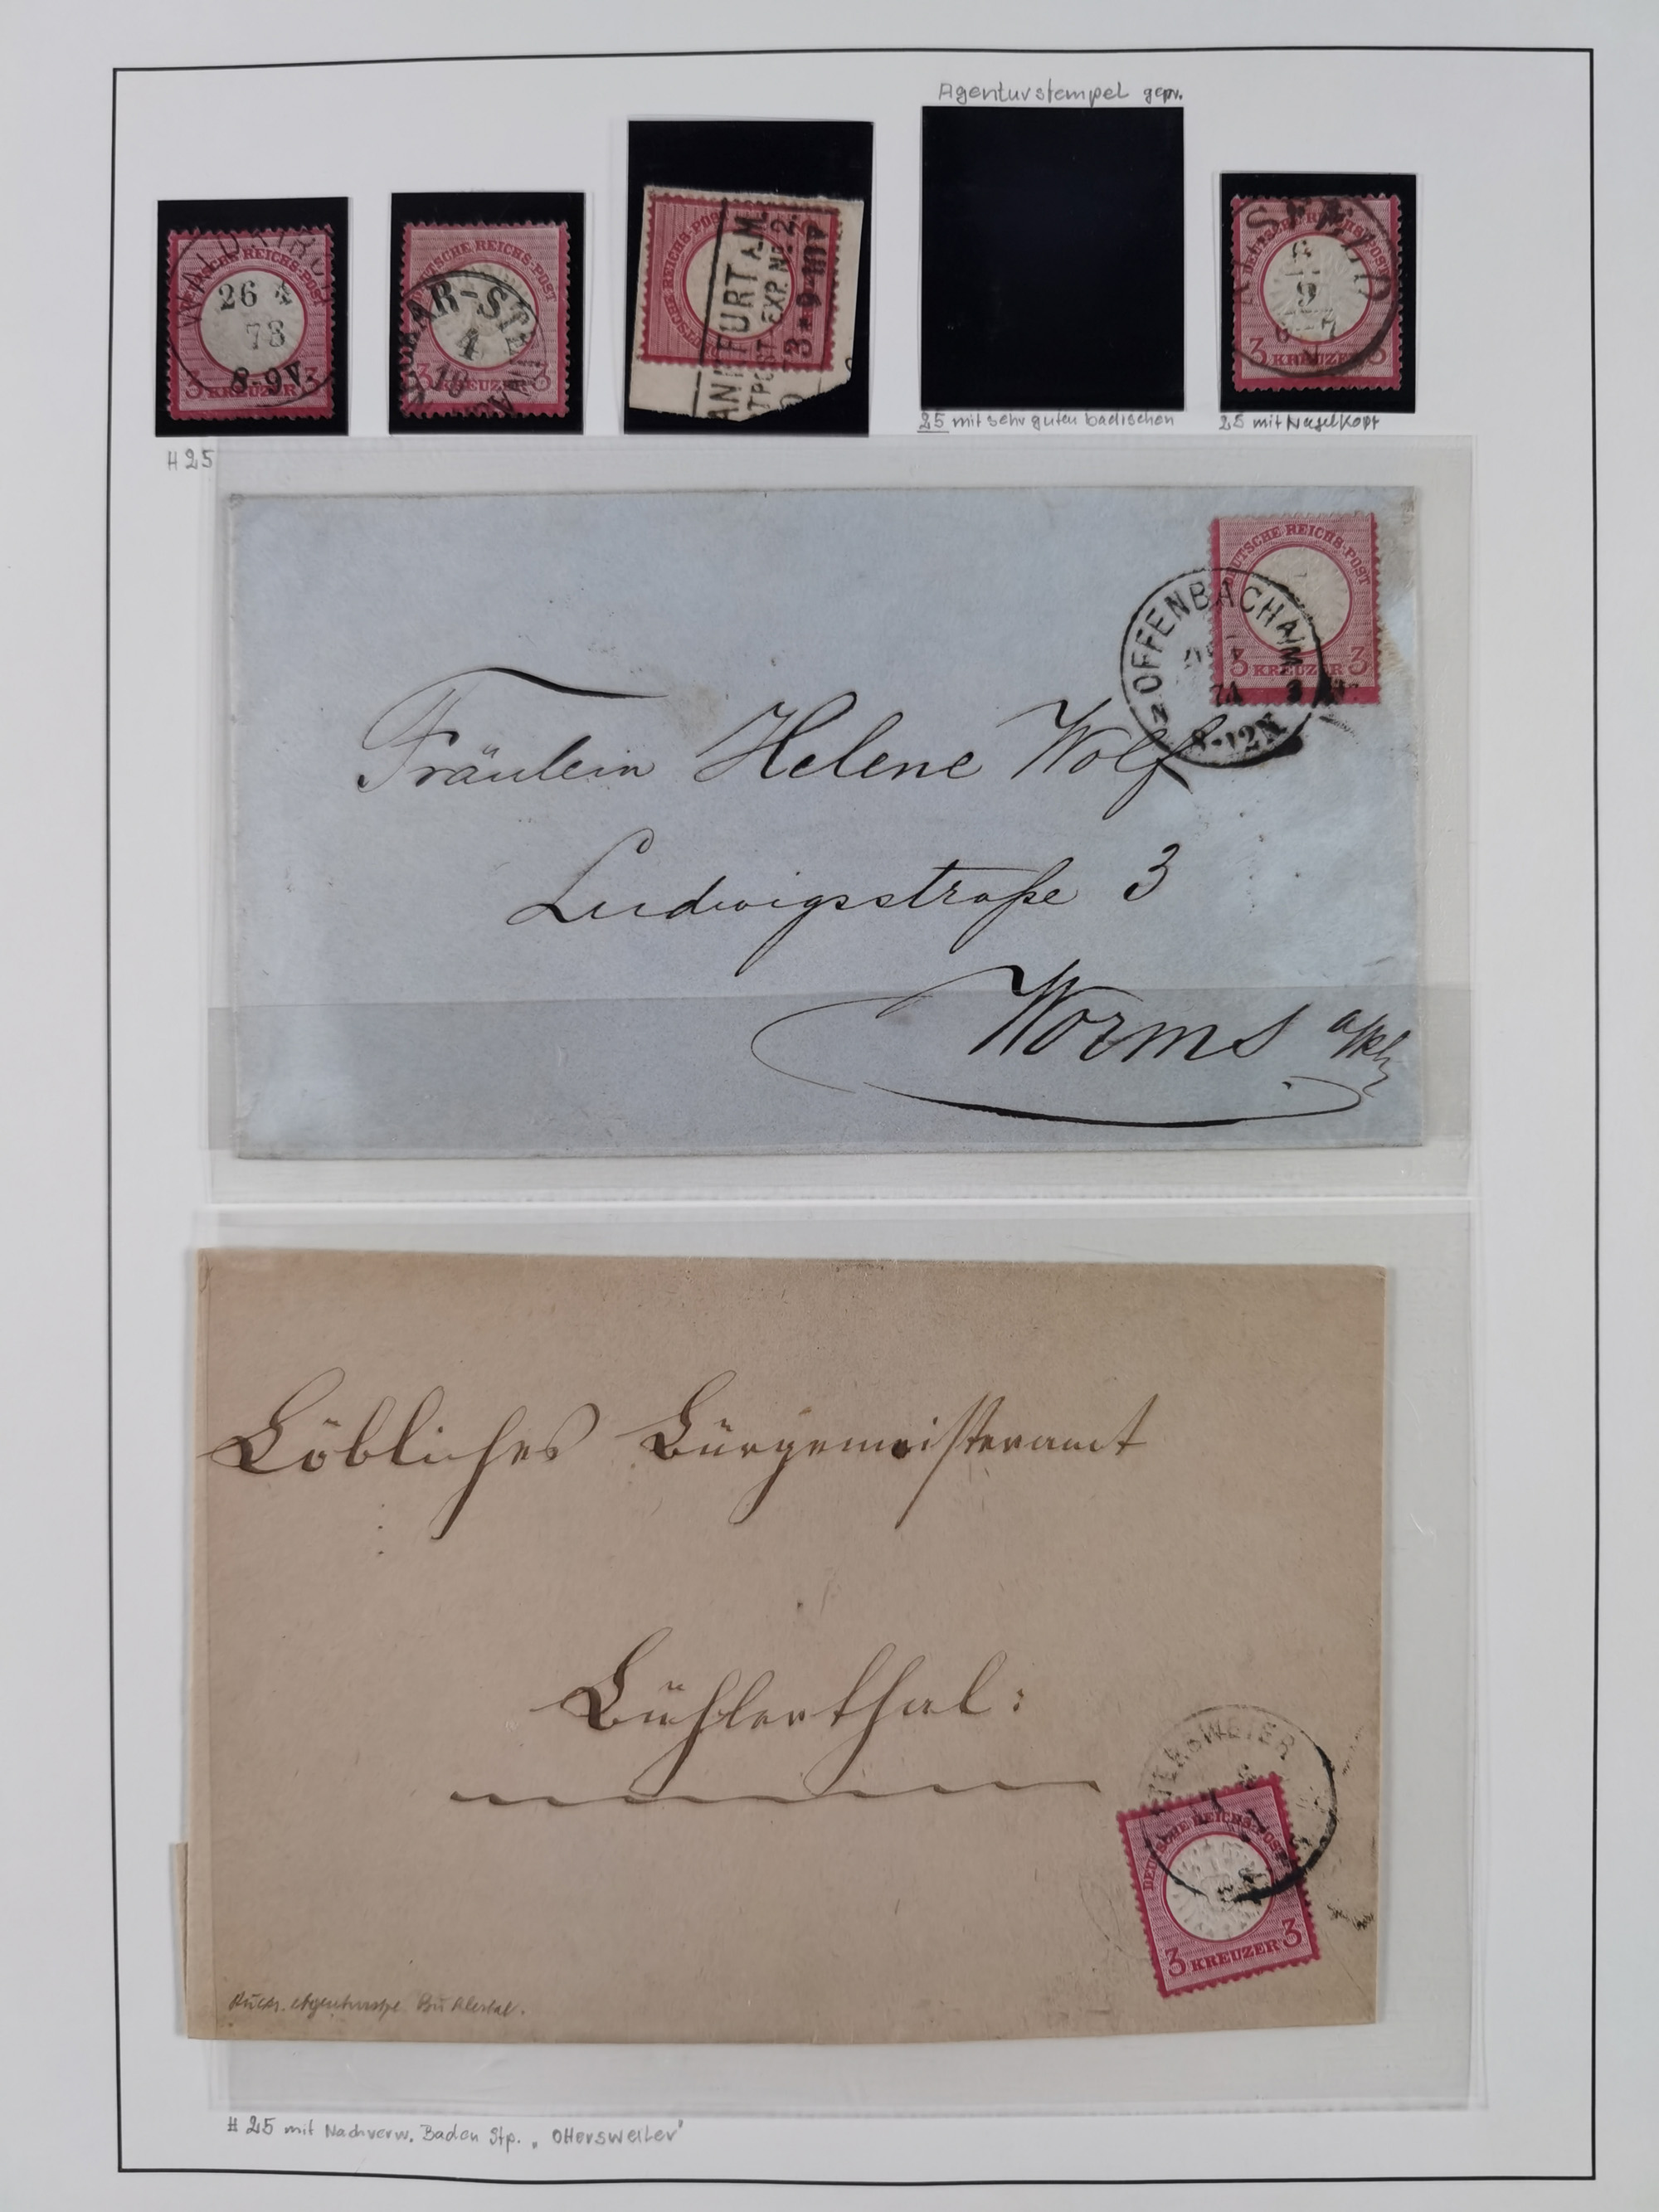 Agenturstempel gepr.
WALDKIRCH
26 4
73
8-9V.
REICHS-POST
3 KREUZER 3
DEUTSCHE REICHS-POST
4
10
3 KREUZER 3
DEUTSCHE REICHS-POST
FURT A.M.
EXP. Nº 2.
73 * 9
DEUTSCHE REICHS-POST
6
9
6-7
N
3 KREUZER 3
25 mit sehr guten badischen
25 mit Nagelkopf
# 25
DEUTSCHE REICHS-POST
3 KREUZER 3
OFFENBACH A/M
74
8-12N
Fräulein Helene Wolf
Ludwigsstraße 3
Worms a/Rh
Löbliches Bürgermeisteramt
Bühlerthal:
OTTERSWEIER
DEUTSCHE REICHS-POST
3 KREUZER 3
Rücks. Agenturstpl. Bühlertal.
# 25 mit Nachverw. Baden Stp. „Ottersweiler"